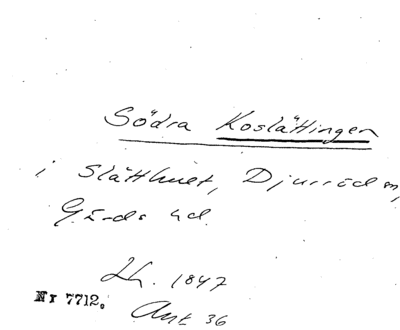 Södra Koslättingen
i Slätthult, Djurröd sn,
Gärds hd.
Lh. 1847
Nr 7712. Akt 36